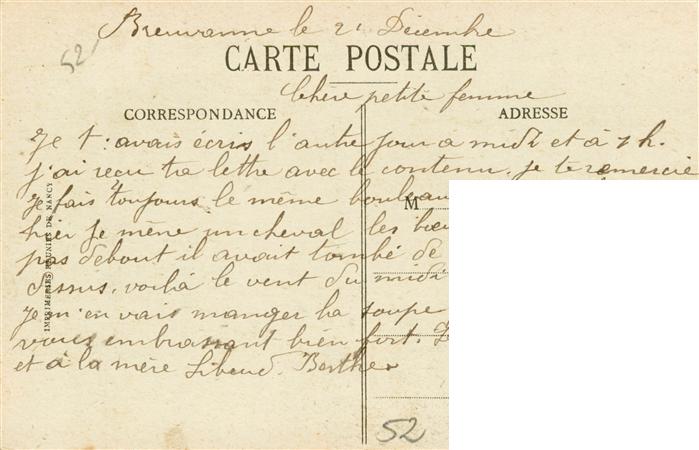 52
Breuvanne le 21 Décembre
CARTE POSTALE
Chère petite femme
CORRESPONDANCE
ADRESSE
Je t'avais écris l'autre jour a midi et à 7 h.
j'ai recu ta lettre avec le contenu. je te remercie
Je fais toujours le même
M
hier je mène un cheval les
pas debout il avait tombé de
dessus. voilà le vent du midi
Je m'en vais manger la soupe
vous embrassant bien fort.
et à la mère Berthe
IMPRIMERIES REUNIES DE NANCY
52